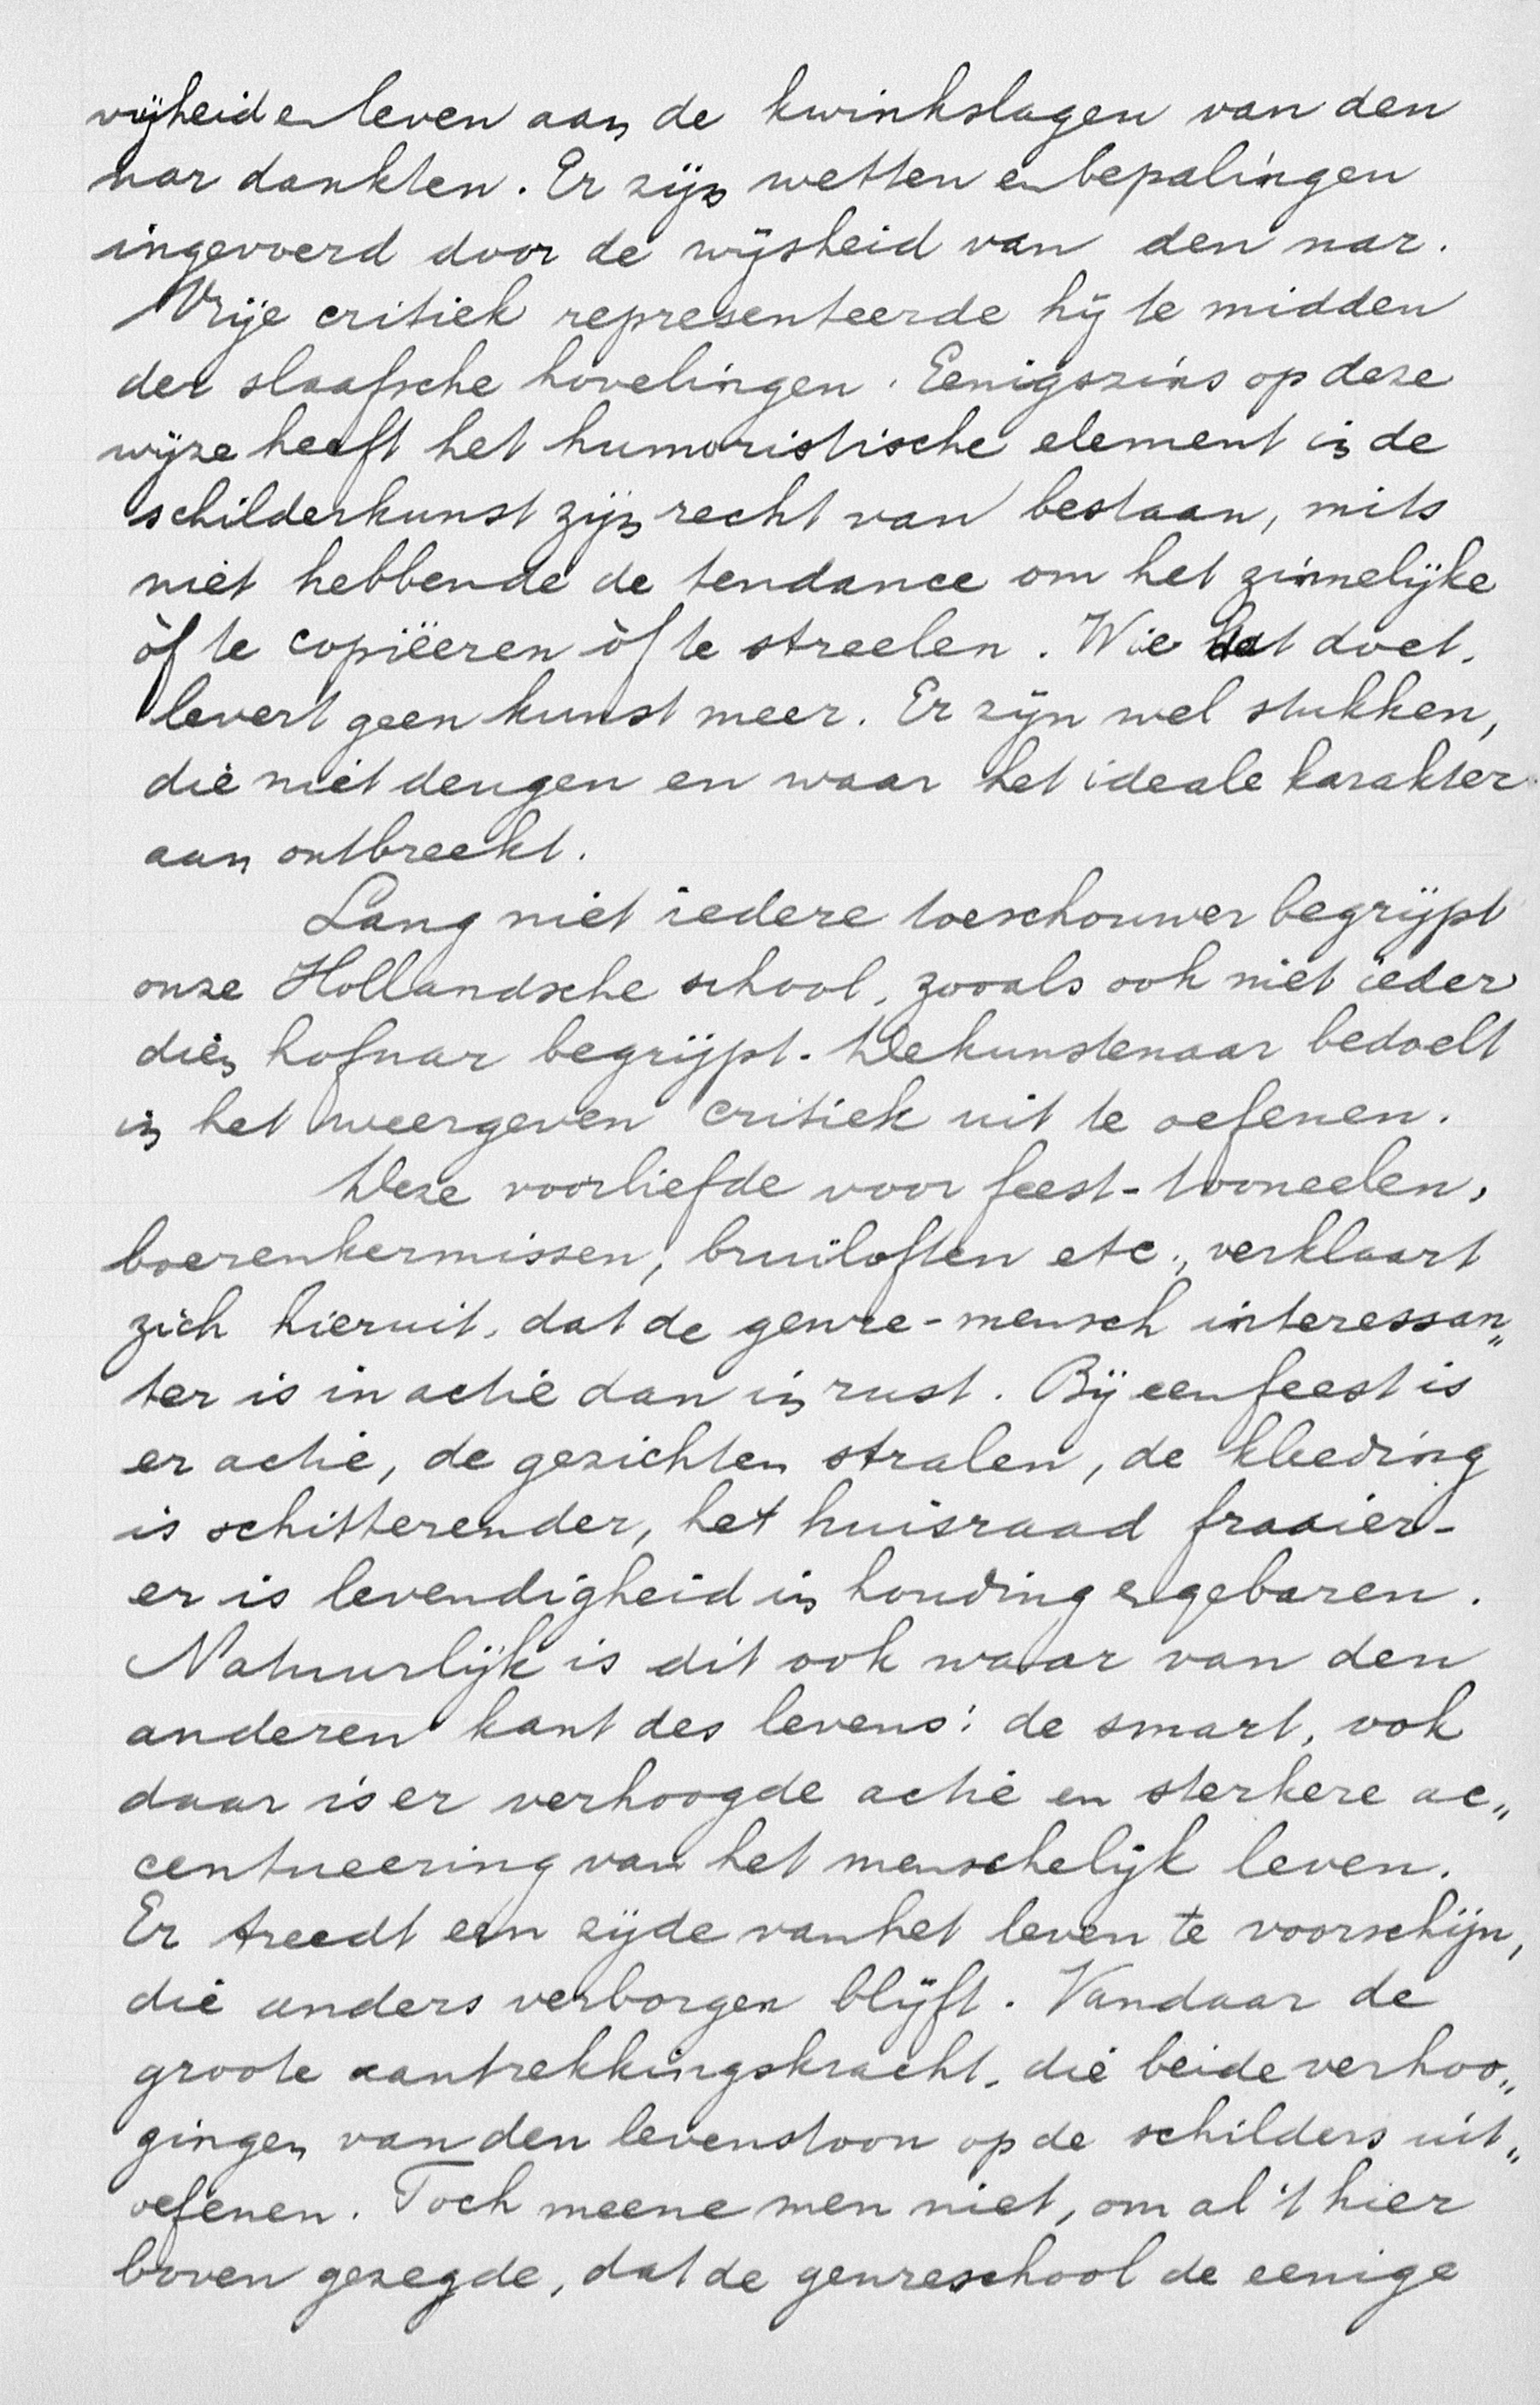 vrijheid en leven aan de kwinkslagen van den
nar dankten. Er zijn wetten en bepalingen
ingevoerd door de wijsheid van den nar.
Vrije critiek representeerde hij te midden
der slaafsche hovelingen. Eenigszins op deze
wijze heeft het humoristische element in de
schilderkunst zijn recht van bestaan, mits
niet hebbende de tendance om het zinnelijke
òf te copiëeren òf te streelen. Wie dat doet,
levert geen kunst meer. Er zijn wel stukken,
die niet deugen en waar het ideale karakter
aan ontbreekt.
Lang niet iedere toeschouwer begrijpt
onze Hollandsche school, zooals ook niet ieder
dien hofnar begrijpt. De kunstenaar bedoelt
in het weergeven critiek uit te oefenen.
Deze voorliefde voor feest-tooneelen,
boerenkermissen, bruiloften etc., verklaart
zich hieruit, dat de genre-mensch interessan„
ter is in actie dan in rust. Bij een feest is
er actie, de gezichten stralen, de kleeding
is schitterender, het huisraad fraaier-
er is levendigheid in houding en gebaren.
Natuurlijk is dit ook waar van den
anderen kant des levens: de smart, ook
daar is er verhoogde actie en sterkere ac„
centueering van het menschelijk leven.
Er treedt een zijde van het leven te voorschijn,
die anders verborgen blijft. Vandaar de
groote aantrekkingskracht, die beide verhoo„
gingen van den levenstoon op de schilders uit„
oefenen. Toch meene men niet, om al 't hier
boven gezegde, dat de genreschool de eenige